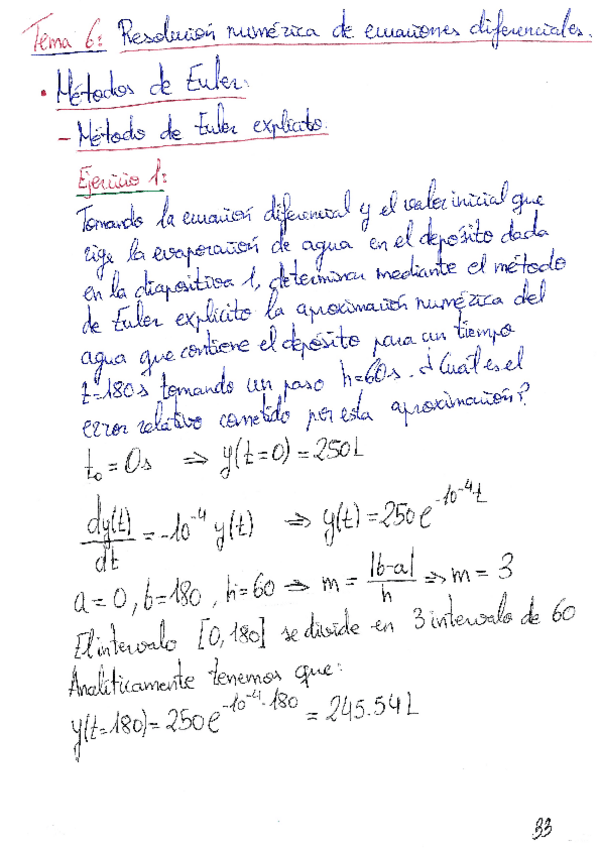 Tema 6: Resolución numérica de ecuaciones diferenciales.
• Métodos de Euler.
– Método de Euler explícito.
Ejercicio 1:
Tomando la ecuación diferencial y el valor inicial que
rige la evaporación de agua en el depósito dada
en la diapositiva 1, determinar mediante el método
de Euler explícito la aproximación numérica del
agua que contiene el depósito para un tiempo
t=180s tomando un paso h=60s. ¿Cuál es el
error relativo cometido por esta aproximación?
t₀ = 0s ⇒ y(t=0) = 250L
dy(t)/dt = -10⁻⁴ y(t) ⇒ y(t) = 250e^(-10⁻⁴t)
a=0, b=180, h=60 ⇒ m = |b-a|/h ⇒ m = 3
El intervalo [0,180] se divide en 3 intervalo de 60
Analíticamente tenemos que:
y(t=180) = 250e^(-10⁻⁴·180) = 245.54L
33